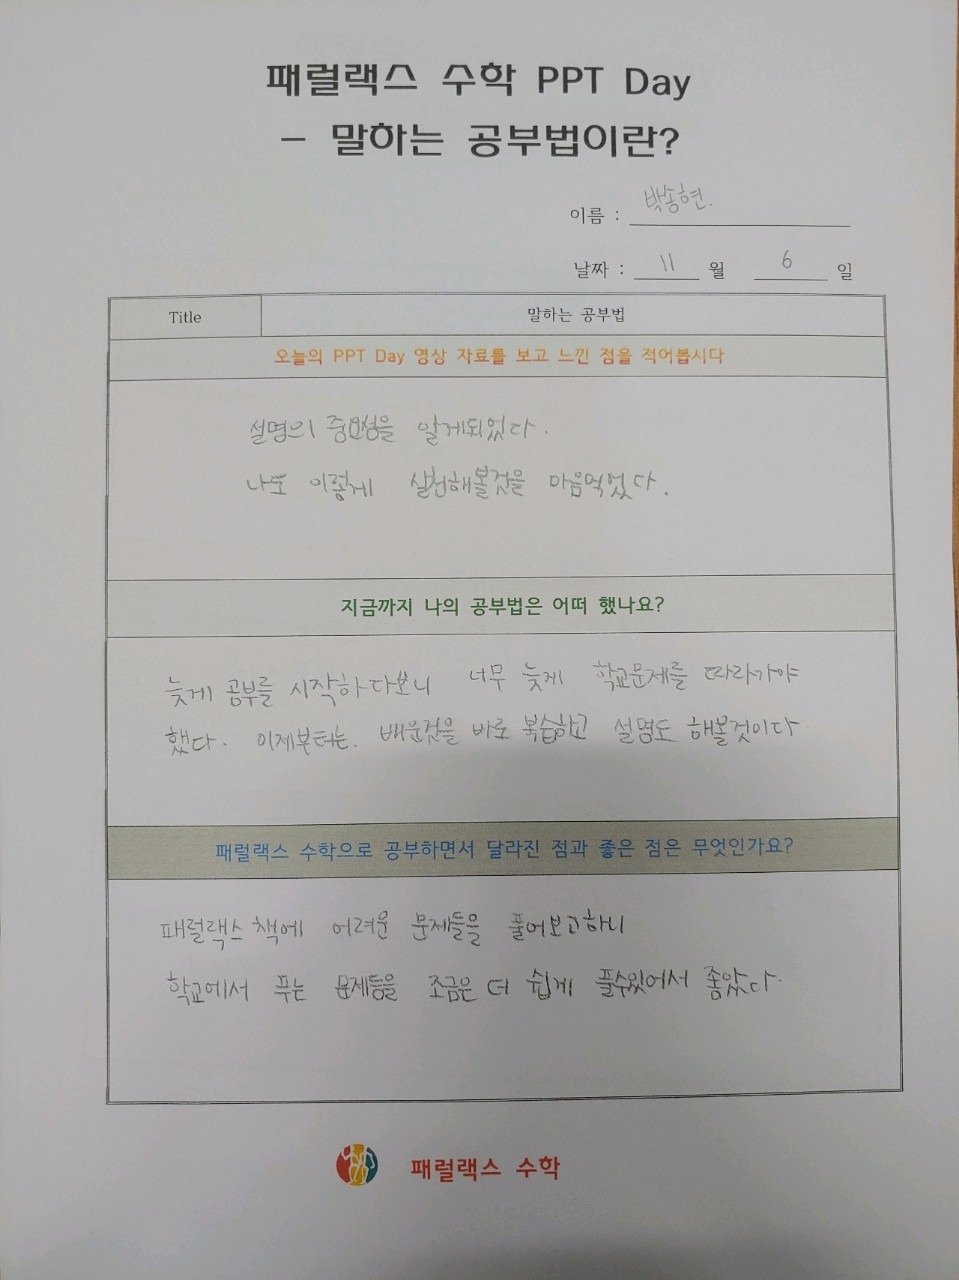 패럴랙스 수학 PPT Day
- 말하는 공부법이란?
이름 : 박송현.
날짜 : 11 월 6 일
Title 말하는 공부법
오늘의 PPT Day 영상 자료를 보고 느낀 점을 적어봅시다
설명의 중요성을 알게되었다.
나도 이렇게 실천해볼것을 마음먹었다.
지금까지 나의 공부법은 어떠 했나요?
늦게 공부를 시작하다보니 너무 늦게 학교문제를 따라가야
했다. 이제부터는. 배운것을 바로 복습하고 설명도 해볼것이다
패럴랙스 수학으로 공부하면서 달라진 점과 좋은 점은 무엇인가요?
패럴랙스 책에 어려운 문제들을 풀어보고하니
학교에서 푸는 문제들을 조금은 더 쉽게 풀수있어서 좋았다.
패럴랙스 수학